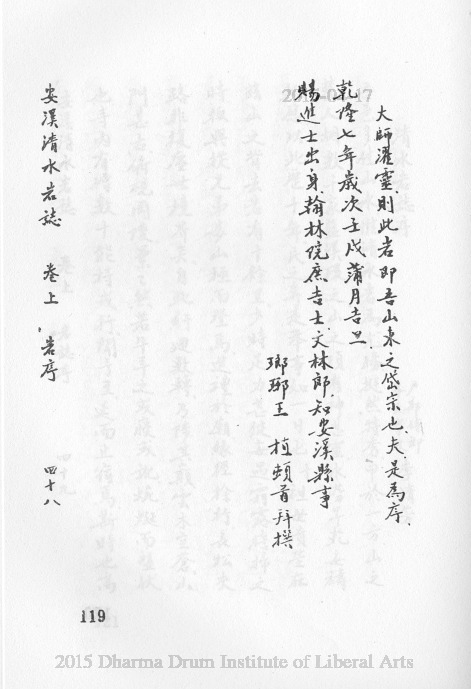 大師濯靈、則此岩即吾山東之岱宗也、夫是為序、
乾隆七年歲次壬戌蒲月吉旦、
賜進士出身、翰林院庶吉士、文林郎、知安溪縣事
瑯琊王 植頓首拜撰
安溪清水岩誌 卷上 岩序 四十八
119
2015 Dharma Drum Institute of Liberal Arts